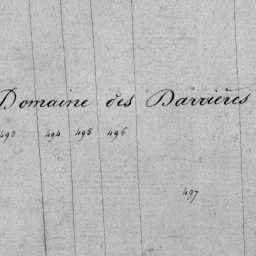 Domaine des Barrières
493 494 495 496
497